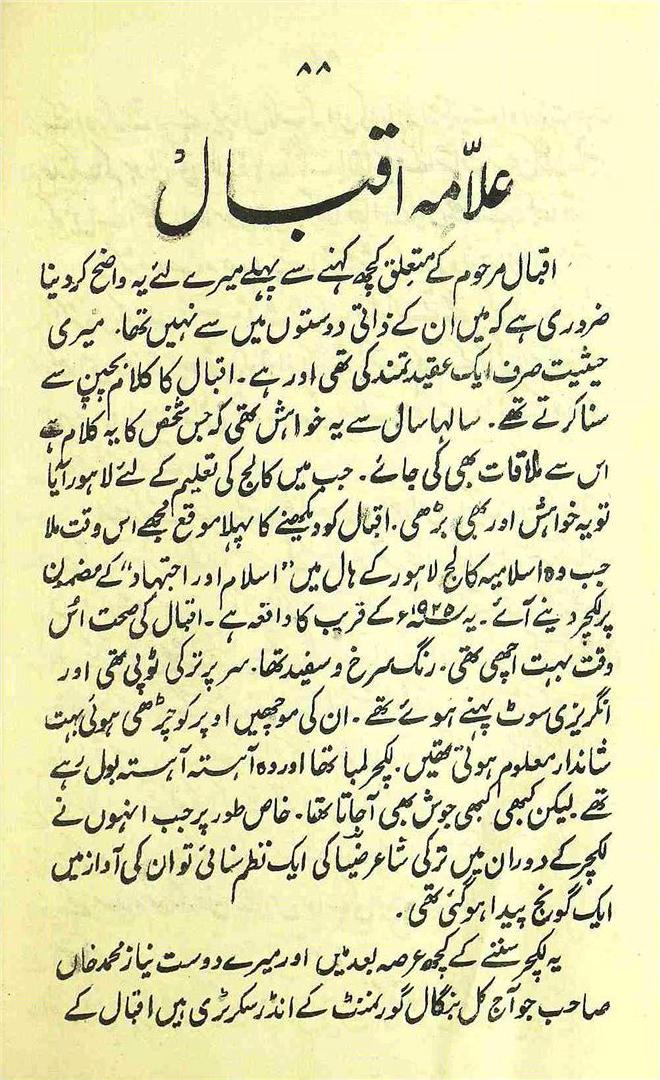 ۸۸
علامہ اقبالؒ
اقبال مرحوم کے متعلق کچھ کہنے سے پہلے میرے لئے یہ واضح کر دینا
ضروری ہے کہ میں ان کے ذاتی دوستوں میں سے نہیں تھا۔ میری
حیثیت صرف ایک عقیدتمند کی تھی اور ہے۔ اقبال کا کلام بچپن سے
سنا کرتے تھے۔ سالہا سال سے یہ خواہش تھی کہ جس شخص کا یہ کلام ہے
اس سے ملاقات بھی کی جائے۔ جب میں کالج کی تعلیم کے لئے لاہور آیا
تو یہ خواہش اور بھی بڑھی۔ اقبال کو دیکھنے کا پہلا موقع مجھے اس وقت ملا
جب وہ اسلامیہ کالج لاہور کے ہال میں "اسلام اور اجتہاد" کے مضمون
پر لکچر دینے آئے۔ یہ ۱۹۲۵ء کے قریب کا واقعہ ہے۔ اقبال کی صحت اُس
وقت بہت اچھی تھی۔ رنگ سرخ و سفید تھا۔ سر پر ترکی ٹوپی تھی اور
انگریزی سوٹ پہنے ہوئے تھے۔ ان کی موچھیں اوپر کو چڑھی ہوئی بہت
شاندار معلوم ہوتی تھیں۔ لکچر لمبا تھا اور وہ آہستہ آہستہ بول رہے
تھے لیکن کبھی کبھی جوش بھی آ جاتا تھا۔ خاص طور پر جب انہوں نے
لکچر کے دوران میں ترکی شاعر ضیا کی ایک نظم سنائی تو ان کی آواز میں
ایک گونج پیدا ہو گئی تھی۔
یہ لکچر سننے کے کچھ عرصہ بعد میں اور میرے دوست نیاز محمد خاں
صاحب جو آج کل بنگال گورنمنٹ کے انڈر سکرٹری ہیں اقبال کے